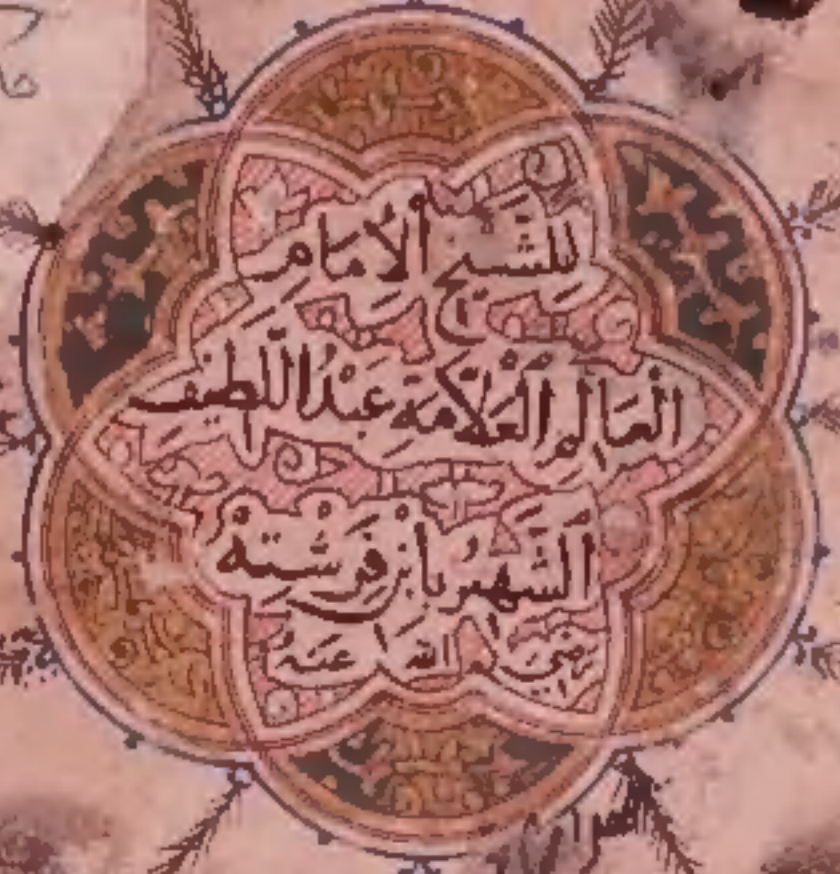 لِلشَّيخ الْاِمَامِ
الْعَالِمِ الْعَلَّامَةِ عَبْدُ اللَّطِيف
الشَّهِيرُ بِابْنِ فِرِشْتَهْ
رَضِيَ اللهُ عَنْهُ